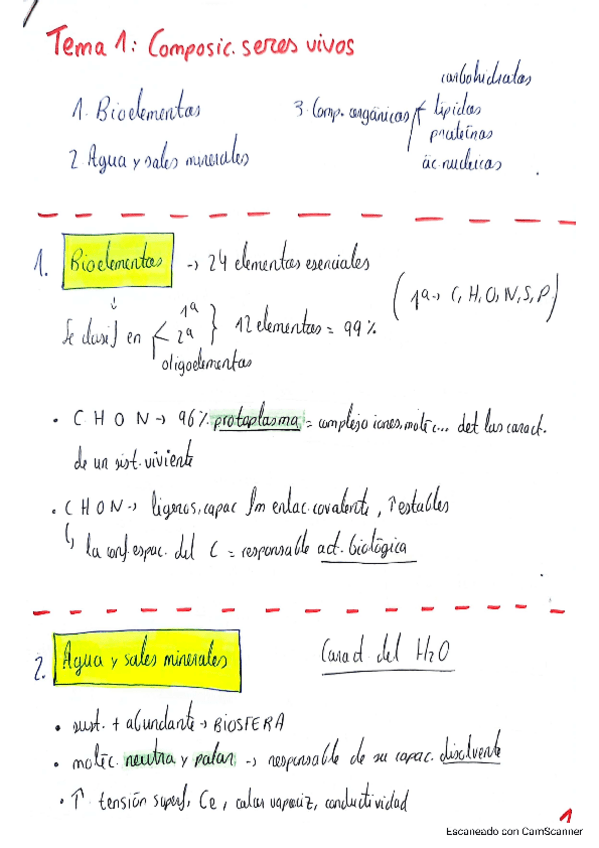 Tema 1: Composic. seres vivos
1. Bioelementos
2. Agua y sales minerales
3. Comp. orgánicos
carbohidratos
lípidos
proteínas
ác. nucleicos
1. Bioelementos -> 24 elementos esenciales
(1ª -> C, H, O, N, S, P)
Se clasif en
1ª
2ª
oligoelementos
} 12 elementos = 99%
• C H O N -> 96% protoplasma = complejo iones, moléc... det las caract.
de un sist. viviente
• C H O N -> ligeros, capac fm enlac. covalente, ↑estables
↳ la conf. espac. del C = responsable act. biológica
2. Agua y sales minerales
Caract. del H2O
• sust. + abundante -> BIOSFERA
• moléc. neutra y polar -> responsable de su capac. disolvente
• ↑ tensión superf, Ce, calor vaporiz, conductividad
1
Escaneado con CamScanner